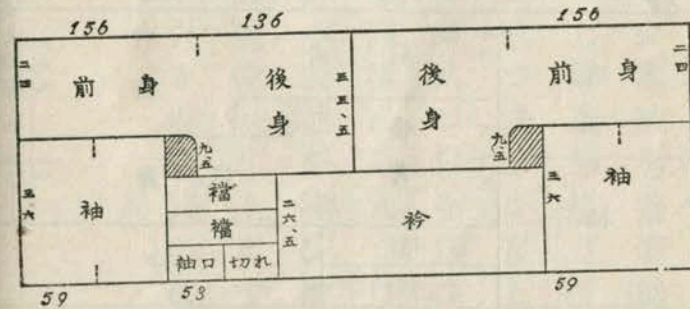 156 136 156
二四 前身 後身 三五、五 後身 前身 二四
九、五 九、五
三六 袖 襠 二六、五 衿 三六 袖
襠
袖口 切れ
59 53 59